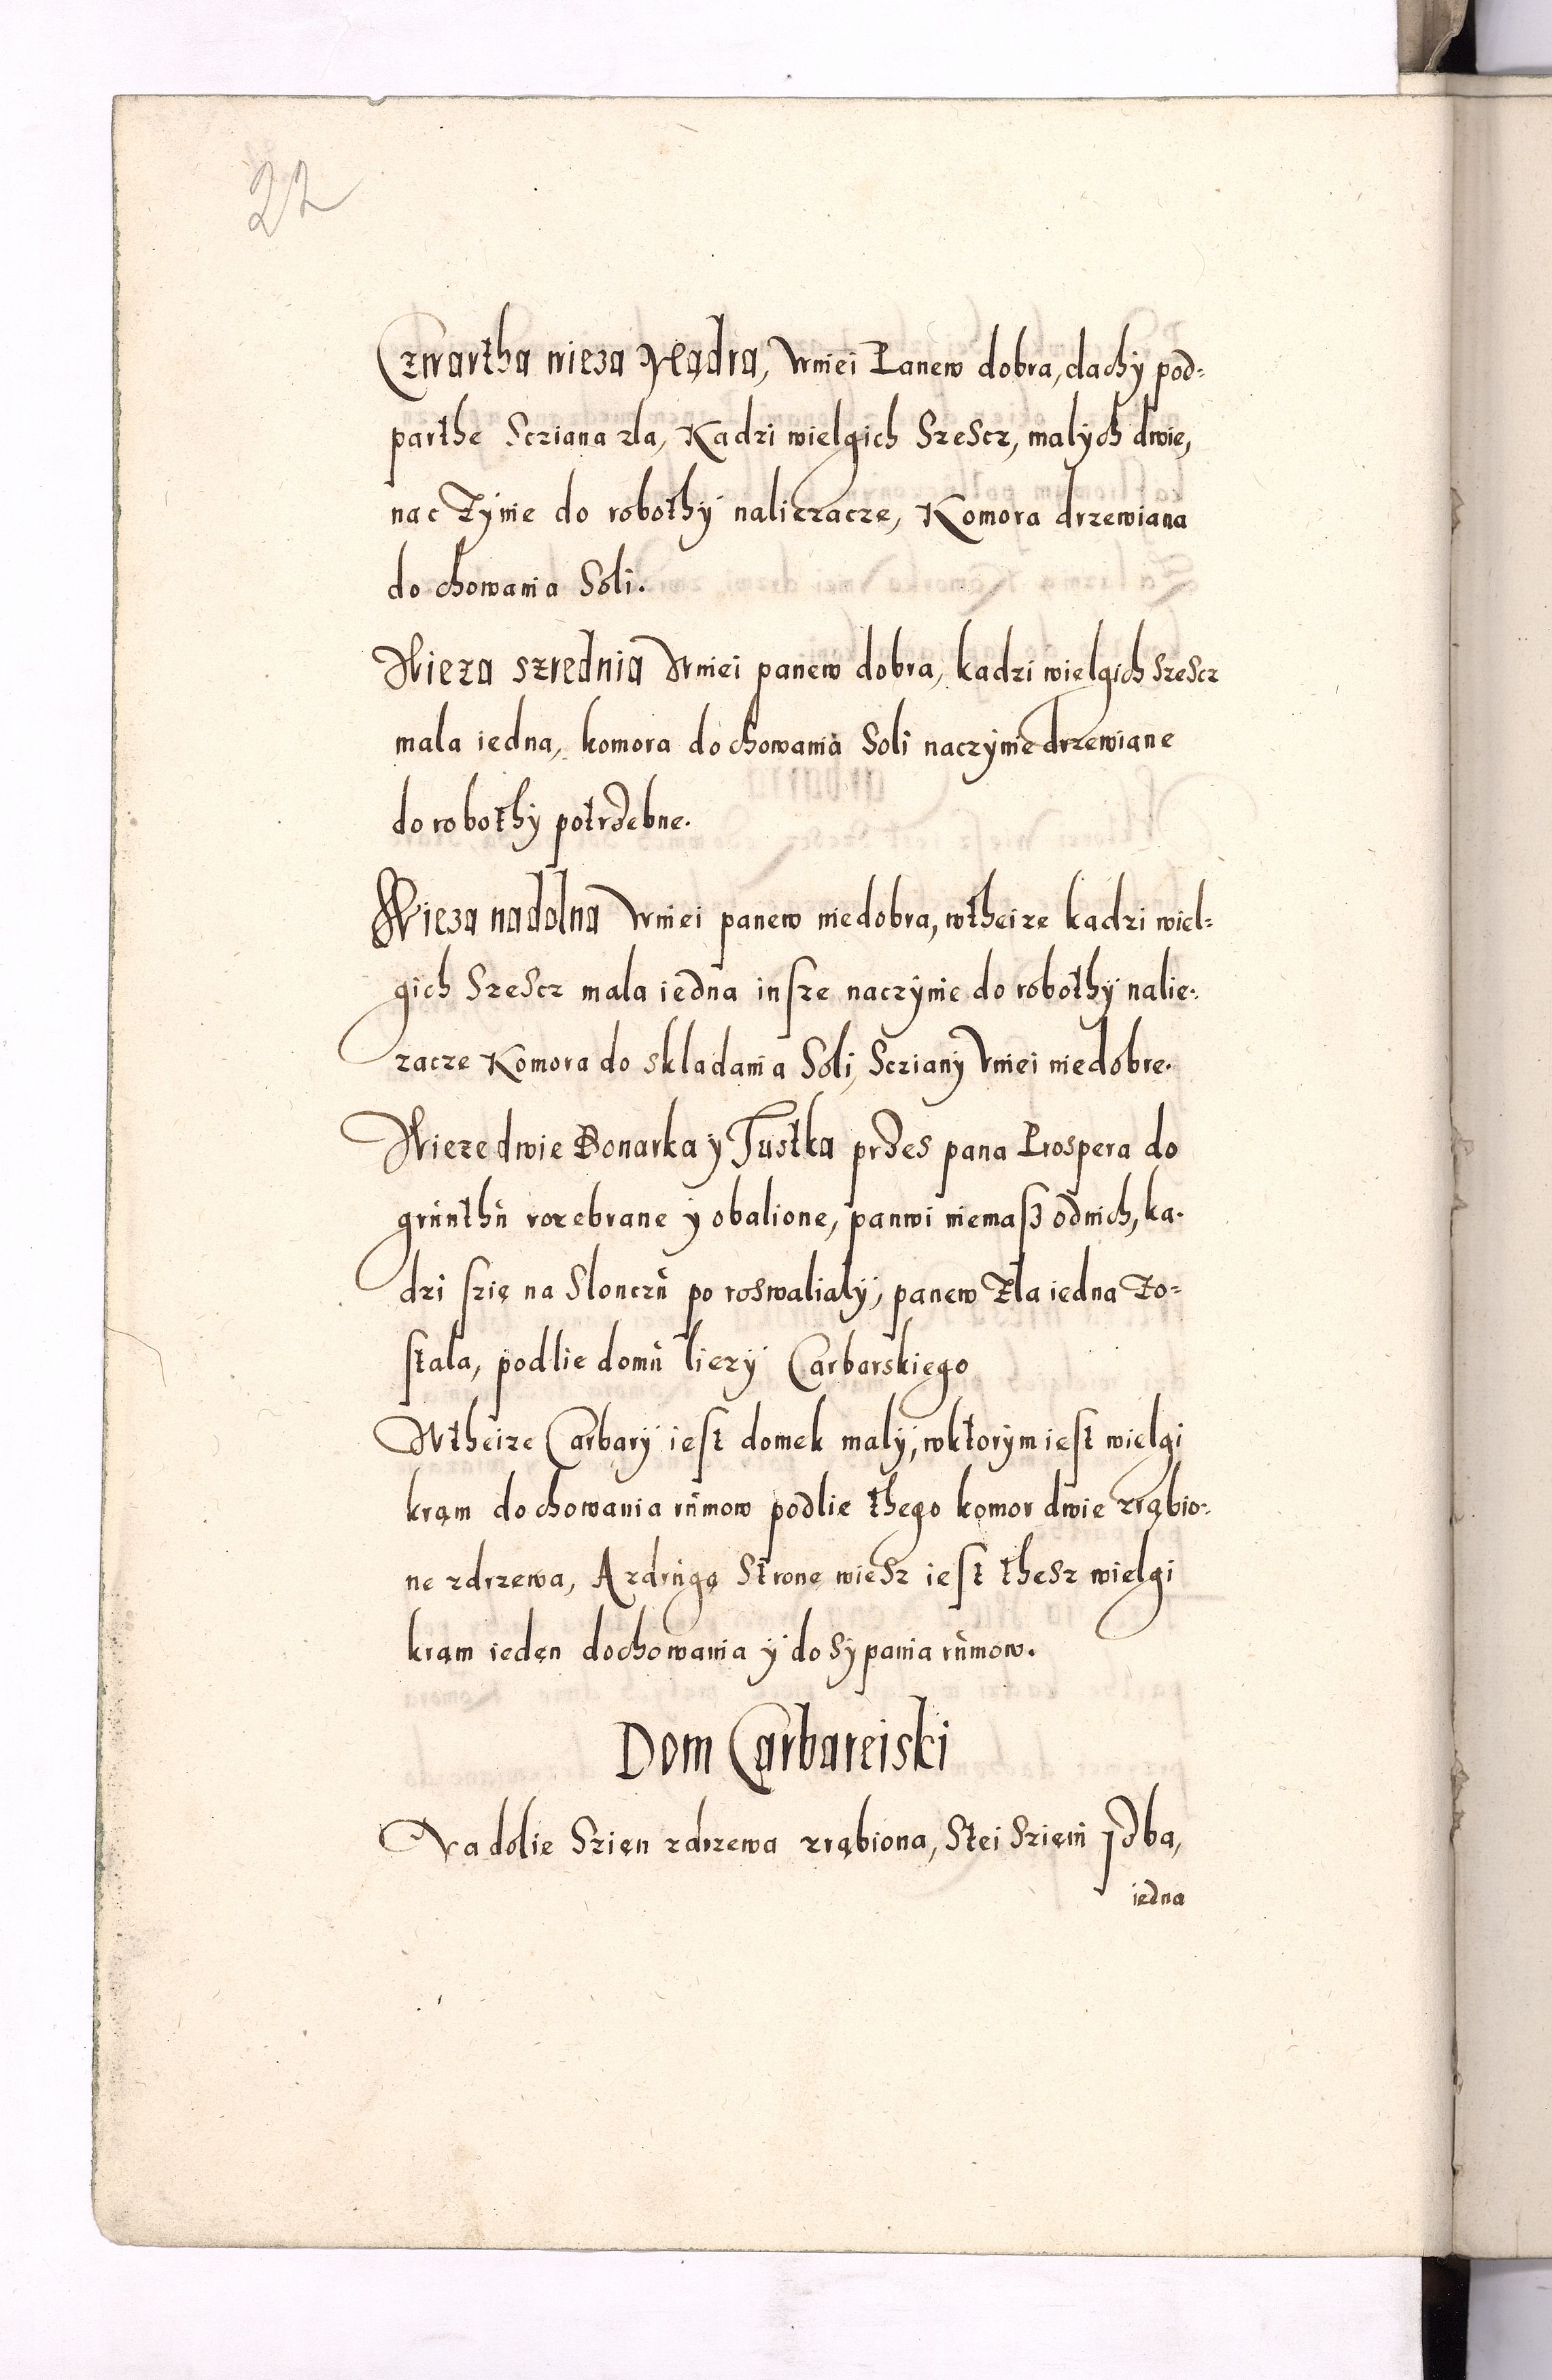 22
Czwartha wieza Mądra, Vniei Panew dobra, dachÿ pod=
parthe Scziana zla, Kadzi wielgich Szescz, malÿch dwie,
naczÿnie do robothÿ naliezacze, Komora drzewiana
do chowania Soli.
Wieza szrednia Vniei panew dobra, kadzi wielgich szescz
mala iedna, komora do chowania Soli naczÿnie drzewiane
do robothÿ potrzebne.
Wieza nadolna Vniei panew niedobra, wtheize kadzi wiel=
gich Szescz mala iedna insze naczÿnie do robothÿ nalie=
zacze Komora do skladania Soli, Sczianÿ Vniei niedobre.
Wieze dwie Bonarka ÿ Tustka przes pana Prospera do
grŭnthŭ rozebrane ÿ obalione, panwi niemaß odnich, ka=
dzi szię na Slonczŭ po roswalialÿ, panew zla iedna zo=
stala, podlie domŭ liezÿ Carbarskiego
Wtheize Carbarÿ iest domek malÿ, wktorÿm iest wielgi
kram do chowania rŭmow podlie thego komor dwie zrąbio=
ne zdrzewa, A zdrŭgą Stronę wiesz iest thesz wielgi
kram ieden dochowania ÿ do sÿpania rŭmow.
Dom Carbareiski
Na dolie Szień zdrzewa zrąbiona, Stei Szieni Jzba,
iedna